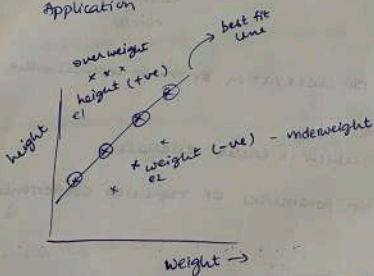 Application
best fit
line
overweight
height (+ve)
e1
height
weight (-ve) - underweight
e2
Weight →